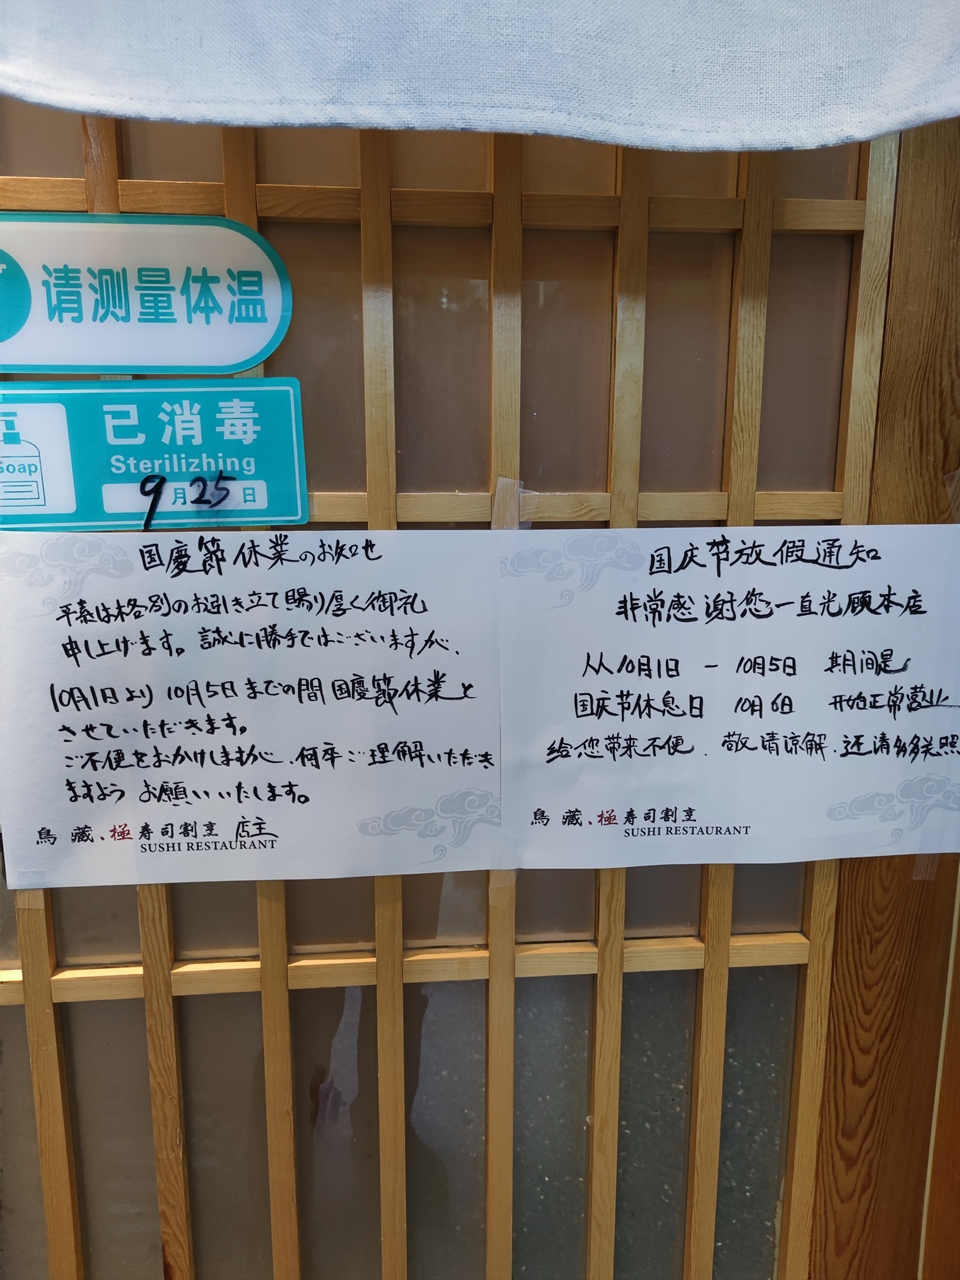 请测量体温
已消毒
Soap
Sterilizhing
9月25日
国慶節休業のお知せ
平素は格別のお引き立て賜り厚く御礼
申し上げます。誠に勝手ではございますが、
10月1日より10月5日までの間国慶節休業と
させていただきます。
ご不便をおかけしますが、何卒ご理解いただき
ますよう お願いいたします。
鳥藏、極 寿司割烹 店主
SUSHI RESTAURANT
国庆节放假通知
非常感谢您一直光顾本店
从10月1日 - 10月5日 期间是
国庆节休息日 10月6日 开始正常营业
给您带来不便、敬请谅解、还请多多关照
鳥藏、極 寿司割烹
SUSHI RESTAURANT